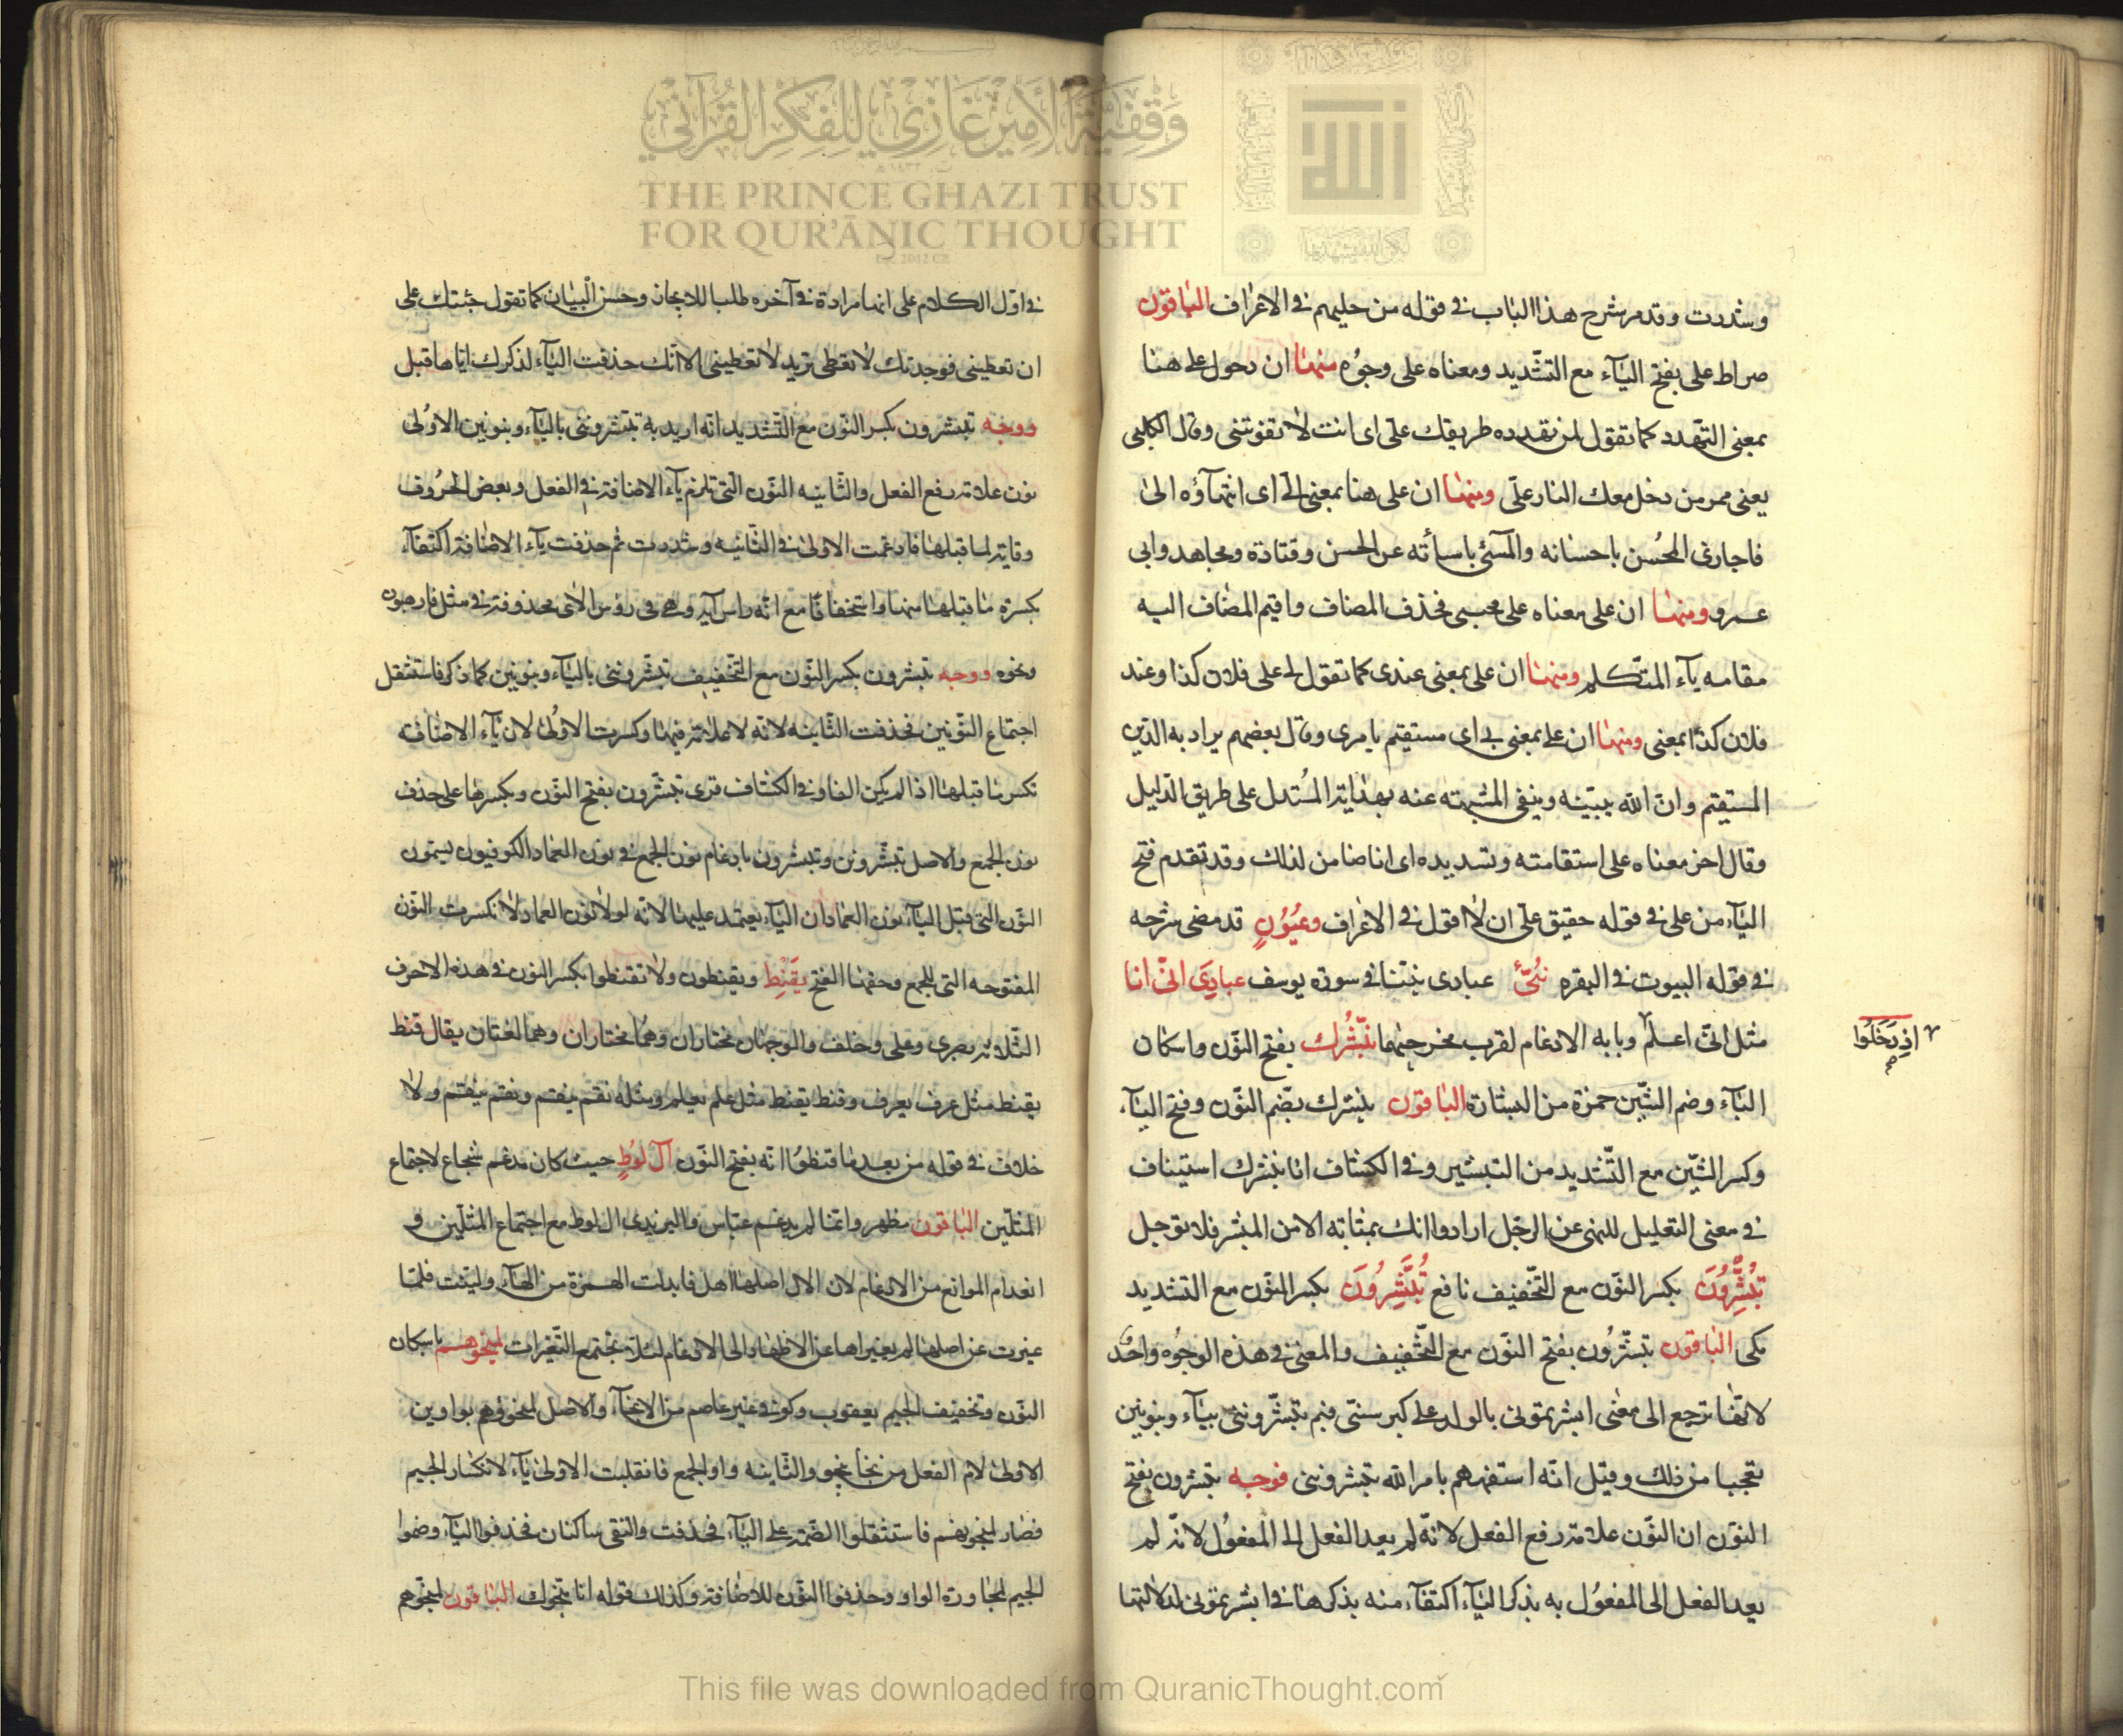 وقفية الأمير غازي للفكر القرآني
THE PRINCE GHAZI TRUST
FOR QUR'ĀNIC THOUGHT
وشددت وقد مر شرح هذا الباب في قوله من حليهم في الاعراف الباقون
صراط على بفتح الياء مع التشديد ومعناه على وجوه منها ان دخول على هنا
بمعنى التهدد كما تقول لمن تهدده طريقك على اى انت لا تفوتنى وقال الكلبى
يعنى ممر من دخل معك النار على ومنها ان على هنا بمعنى الى اى انتهاؤه الى
فاجازى المحسن باحسانه والمسئ باسأته عن الحسن وقتادة ومجاهد وابى
عمرو ومنها ان على معناه على محبسى فحذف المضاف واقيم المضاف اليه
مقامه ياء المتكلم ومنها ان على بمعنى عندى كما تقول لى على فلان كذا وعند
فلان كذا بمعنى ومنها ان على بمعنى بى اى مستقيم بامرى وقال بعضهم يراد به الدين
المستقيم وان الله يبينه وينفى الشبهة عنه بهداية المستدل على طريق الدليل
وقال اخر معناه على استقامته وتسديده اى انا ضامن لذلك وقد تقدم فتح
الياء من على في قوله حقيق على ان لا اقول في الاعراف وعيون قد مضى شرحه
في قوله البيوت في البقره نبئ عبادى نبئنا في سورة يوسف عبادى انى انا
مثل انى اعلم وبابه الادغام لقرب مخرجهما نبشرك بفتح النون واسكان
اذ دخلوا
صح
الباء وضم الشين حمزة من البشارة الباقون نبشرك بضم النون وفتح الباء
وكسر الشين مع التشديد من التبشير وفي الكشاف انا نبشرك استيناف
في معنى التعليل للنهى عن الوجل ارادوا انك بمثابة الامن المبشر فلا توجل
تبشرون بكسر النون مع التخفيف نافع تبشرون بكسر النون مع التشديد
مكى الباقون تبشرون بفتح النون مع التخفيف والمعنى في هذه الوجوه واحد
لانها ترجع الى معنى ابشرتمونى بالولد على كبر سنى فبم تبشروننى بياء وبنونين
تعجبا من ذلك وقيل انه استفهم بامر الله تبشروننى فوجه تبشرون بفتح
النون ان النون علامة رفع الفعل لانه لم يعد الفعل الى المفعول لانه لم
يعد الفعل الى المفعول به بذكر الياء اكتفاء منه بذكرها في ابشرتمونى لدلالتها
في اول الكلام على انها مرادة في آخره طلبا للايجاز وحسن البيان كما تقول جئتك على
ان تعطينى فوجدتك لا تعطى تريد لا تعطينى الا انك حذفت الياء لذكرك اياها قبل
ووجه تبشرون بكسر النون مع التشديد انه اريد به تبشروننى بالياء وبنونين الاولى
نون علامة رفع الفعل والثانيه النون التى تلزم ياء الاضافة في الفعل وبعض الحروف
وقاية لما قبلها فادغمت الاولى في الثانيه وشددت ثم حذفت ياء الاضافة اكتفاء
بكسرة ما قبلها منها واستخفافا مع انه راس آية وهى في رؤس الآى محذوفة في مثل فارهبون
ونحوه ووجه تبشرون بكسر النون مع التخفيف تبشروننى بالياء وبنونين كما ذكر فاستثقل
اجتماع النونين فحذفت الثانيه لانه لا علامة فيها وكسرت الاولى لان ياء الاضافة
تكسر ما قبلها اذا لم يكن الفا وفي الكشاف قرى تبشرون بفتح النون وبكسرها على حذف
نون الجمع والاصل تبشرونن وتبشرون بادغام نون الجمع في نون العماد الكوفيون يسمون
النون التى قبل الياء نون العماد لان الياء يعتمد عليها لانه لولا نون العماد لانكسرت النون
المفتوحه التى للجمع وحقها الفتح يقنط ويقنطون ولا تقنطوا بكسر النون في هذه الاحرف
الثلاثة بصرى وعلى وخلف والوجهان مختاران وهما لغتان يقال قنط
يقنط مثل عرف يعرف وقنط يقنط مثل علم يعلم ومثله نقم ينقم ونقم ينقم ولا
خلاف في قوله من بعد ما قنطوا انه بفتح النون آل لوط حيث كان مدغم شجاع لاجتماع
المثلين الباقون مظهر وانما لم يدغم عباس واليزيدى ال لوط مع اجتماع المثلين و
انعدام الموانع من الادغام لان الال اصلها اهل فابدلت الهمزة من الهاء ولينت فلما
غيرت عن اصلها لم يغيراها عن الاظهار الى الادغام لئلا تجتمع التغيرات لمنجوهم باسكان
النون وتخفيف الجيم يعقوب وكوفى غير عاصم من الانجاء والاصل لمنجووهم بواوين
الاولى لام الفعل من نجا ينجو والثانيه واو الجمع فانقلبت الاولى ياء لانكسار الجيم
فصار لمنجيوهم فاستثقلوا الضمة على الياء فحذفت والتقى ساكنان فحذفوا الياء وضموا
الجيم لمجاورة الواو وحذفوا النون للاضافة وكذلك قوله انا منجوك الباقون لمنجوهم
This file was downloaded from QuranicThought.com